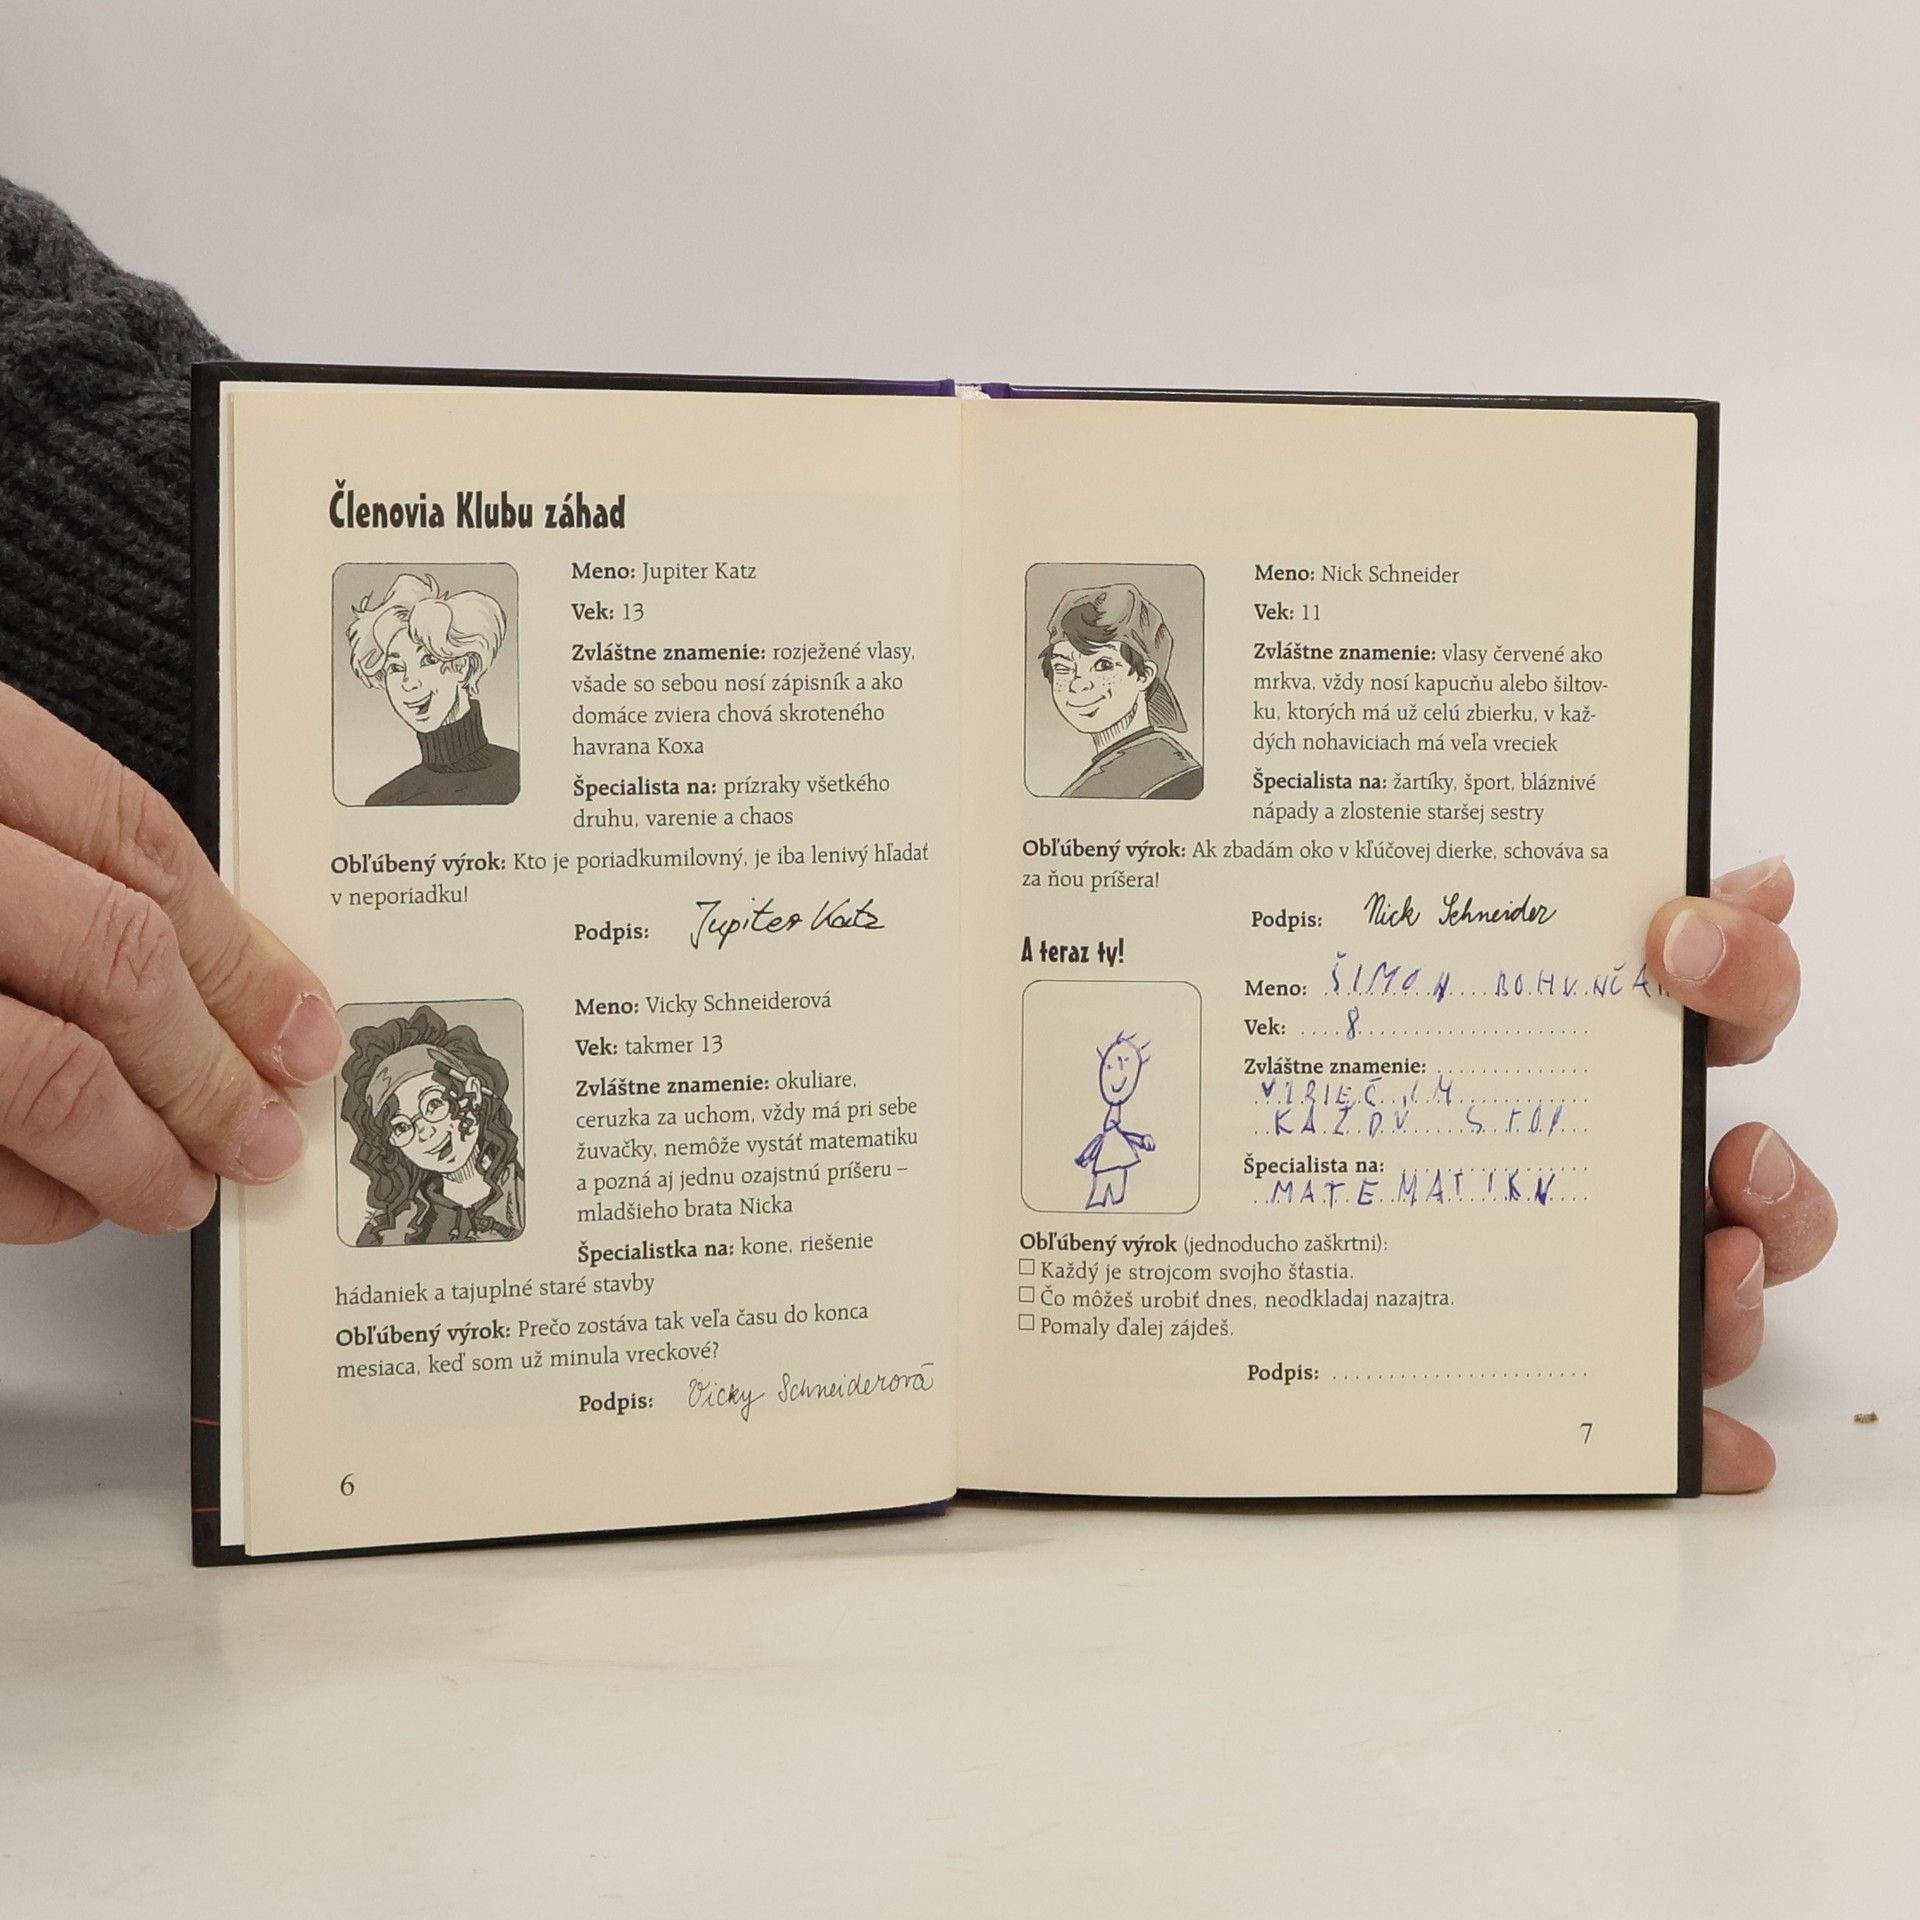 Členovia Klubu záhad
Meno: Jupiter Katz
Vek: 13
Zvláštne znamenie: rozježené vlasy,
všade so sebou nosí zápisník a ako
domáce zviera chová skroteného
havrana Koxa
Špecialista na: prízraky všetkého
druhu, varenie a chaos
Obľúbený výrok: Kto je poriadkumilovný, je iba lenivý hľadať
v neporiadku!
Podpis: Jupiter Katz
Meno: Vicky Schneiderová
Vek: takmer 13
Zvláštne znamenie: okuliare,
ceruzka za uchom, vždy má pri sebe
žuvačky, nemôže vystáť matematiku
a pozná aj jednu ozajstnú príšeru –
mladšieho brata Nicka
Špecialistka na: kone, riešenie
hádaniek a tajuplné staré stavby
Obľúbený výrok: Prečo zostáva tak veľa času do konca
mesiaca, keď som už minula vreckové?
Podpis: Vicky Schneiderová
6
Meno: Nick Schneider
Vek: 11
Zvláštne znamenie: vlasy červené ako
mrkva, vždy nosí kapucňu alebo šiltov-
ku, ktorých má už celú zbierku, v kaž-
dých nohaviciach má veľa vreciek
Špecialista na: žartíky, šport, bláznivé
nápady a zlostenie staršej sestry
Obľúbený výrok: Ak zbadám oko v kľúčovej dierke, schováva sa
za ňou príšera!
Podpis: Nick Schneider
A teraz ty!
Meno: ŠIMON
Vek: 8
Zvláštne znamenie:
Špecialista na:
Obľúbený výrok (jednoducho zaškrtni):
Každý je strojcom svojho šťastia.
Čo môžeš urobiť dnes, neodkladaj nazajtra.
Pomaly ďalej zájdeš.
Podpis:
7